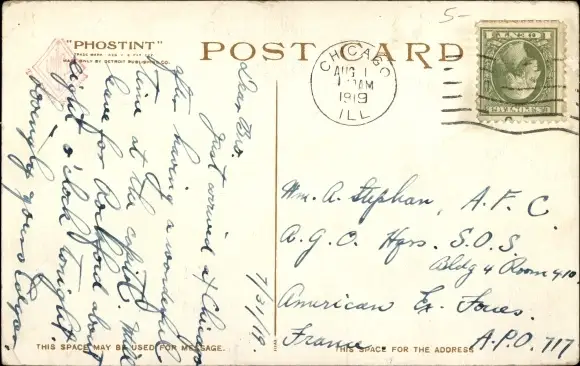 5-
"PHOSTINT"
POST CARD
MADE ONLY BY DETROIT PUBLISHING CO.
CHICAGO
AUG 1
AM
1919
ILL
1 CENT 1
7/31/19.
Dear Bro.
Just arrived at Chicago
after having a wonderful
time at the capitol. Will
leave for Rockford about
eight o'clock tonight.
Lovingly yours
Wm. A. Stephan, A.F.C.
A.G.O. Hqrs. S.O.S.
Bldg 4 Room 410.
American Ex. Forces.
France. A.P.O. 717
THIS SPACE MAY BE USED FOR MESSAGE.
THIS SPACE FOR THE ADDRESS